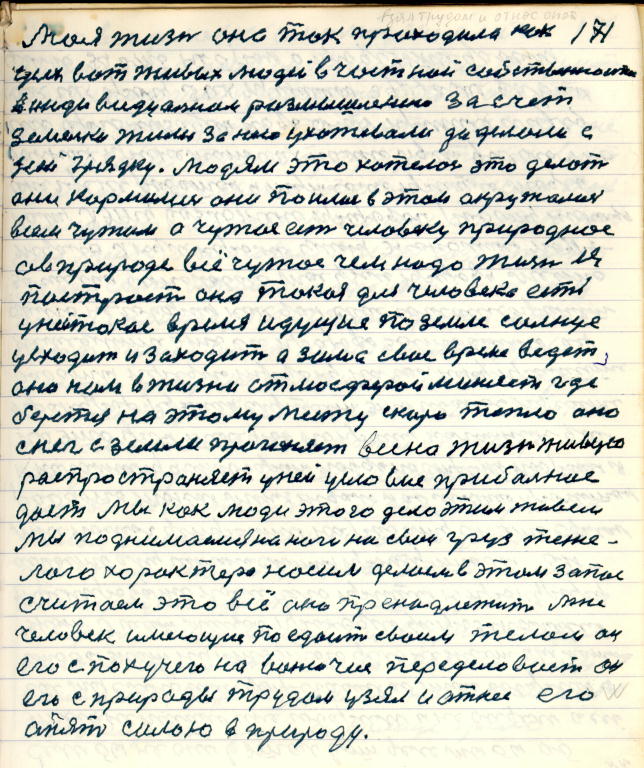 взял трудом и отнес опять
Моя жизн она так проходила как 171
у их вот живых людей в частной собственности
индивидуалном размышлению за счет
земелки жили за нею ухаживали да делали с
ней грядку. Людям это хотелос это делат
они кормилися они поили в этом окружалися
всем чужим а чужое ест человеку природное
ов природе всё чужое чем надо жизн
построит она такая для человека есть
унеё такое время идущие по земле солнце
уходит и заходит а зима свое время ведет
она нам в жизни атмосферой меняет где
берется на этому месту скоро тепло оно
снег с земли прогоняет весна жизн живую
распространяет уней условие прибалное
дает мы как люди этого дело этим живем
мы поднимаемся на ноги на свой груз тяже-
лого характера носим делаем в этом запас
считаем это всё она пренадлежит мне
человек имеющие поедает своим телом он
его с пахучего на вонючие переделовает он
его с природы трудом узял и отнес его
опять силою в природу.